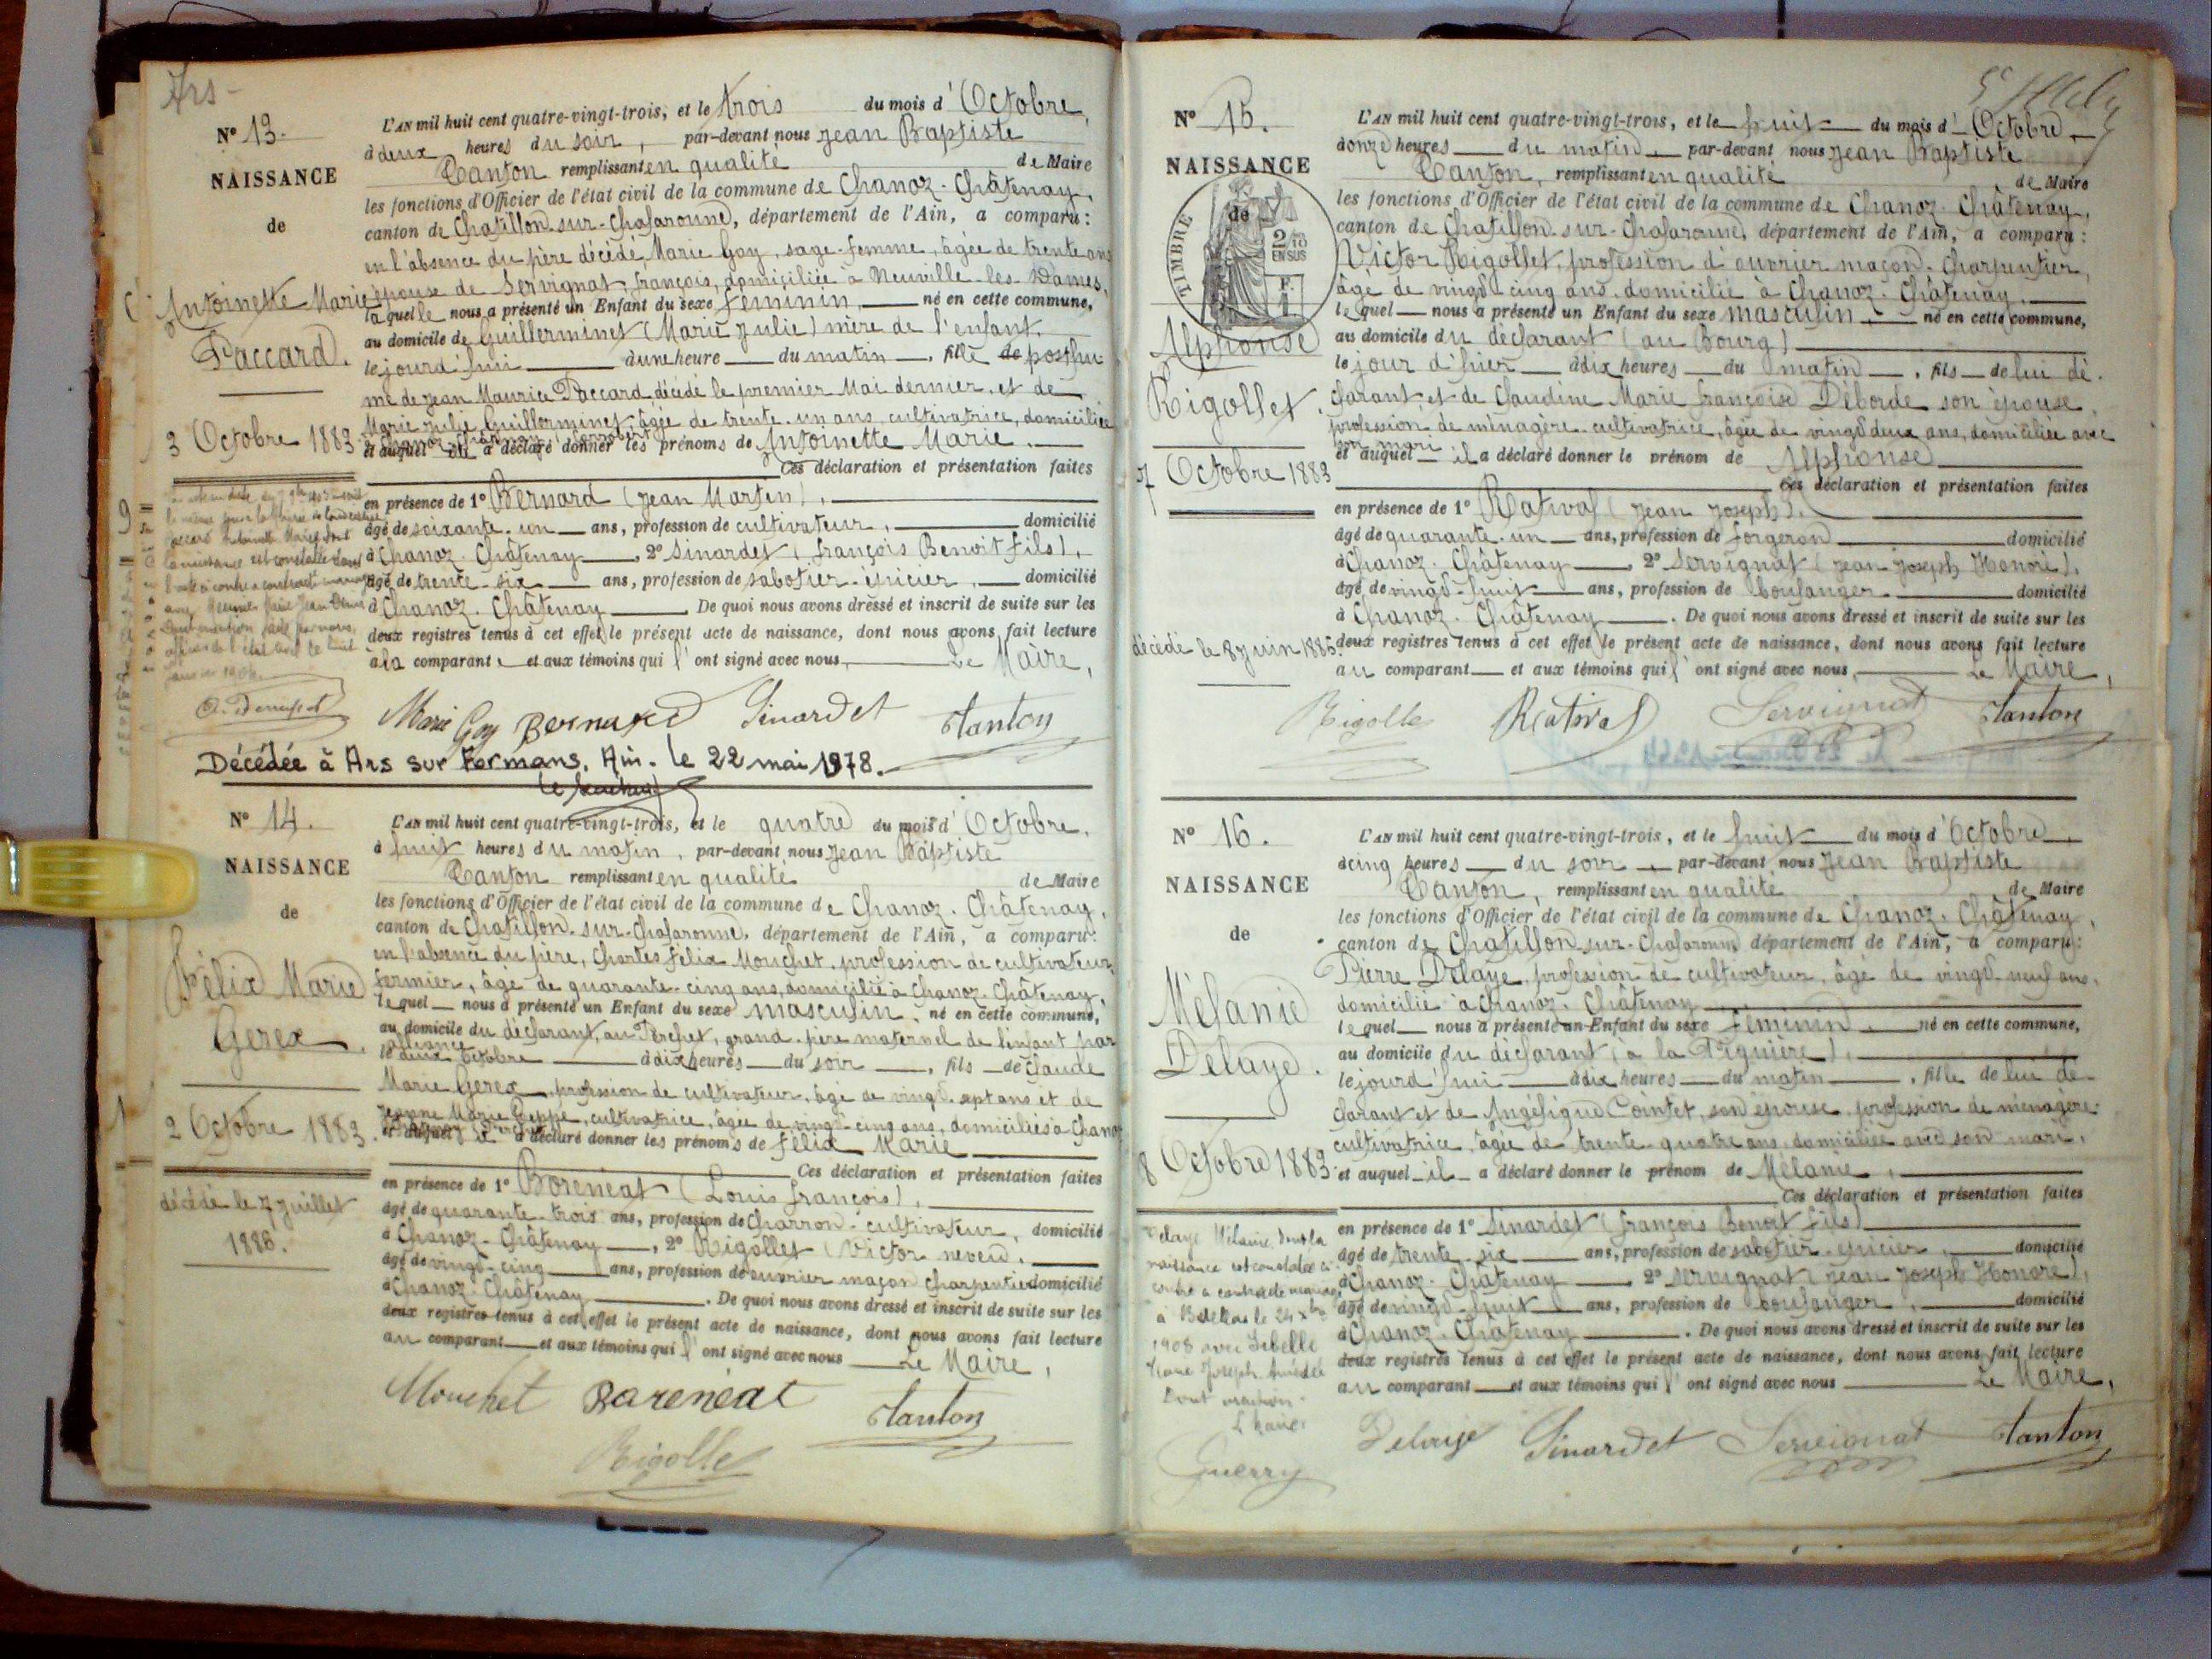 Ars -
N° 13.
NAISSANCE
de
Antoinette Marie
Paccard.
3 Octobre 1883.
L'AN mil huit cent quatre-vingt-trois, et le trois du mois d'Octobre,
à deux heures du soir, par-devant nous Jean Baptiste
Tanton remplissant en qualité de Maire
les fonctions d'Officier de l'état civil de la commune de Chanoz-Châtenay,
canton de Chatillon-sur-Chalaronne, département de l'Ain, a comparu:
en l'absence du père décédé, Marie Goy, sage-femme, âgée de trente ans
épouse de Servignat, françois, domiciliée à Neuville-les-Dames,
laquelle nous a présenté un Enfant du sexe féminin, né en cette commune,
au domicile de Guillerminet (Marie Julie) mère de l'enfant,
le jourd'hui à une heure du matin, fille de posthu-
me de Jean Maurice Paccard décédé le premier Mai dernier, et de
Marie Julie Guillerminet, âgée de trente-un ans, cultivatrice, domiciliée
à Chanoz-Châtenay
et auquel elle a déclaré donner les prénoms de Antoinette Marie.
Ces déclaration et présentation faites
en présence de 1° Bernard (Jean Martin),
âgé de soixante-un ans, profession de cultivateur, domicilié
à Chanoz-Châtenay, 2° Sinardet (françois Benoit fils),
âgé de trente-six ans, profession de sabotier-épicier, domicilié
à Chanoz-Châtenay. De quoi nous avons dressé et inscrit de suite sur les
deux registres tenus à cet effet le présent acte de naissance, dont nous avons fait lecture
à la comparante et aux témoins qui l'ont signé avec nous, Le Maire,
Marie Goy Bernard Sinardet Tanton
Décédée à Ars sur Formans, Ain. le 22 mai 1978.
N° 14.
NAISSANCE
de
Félix Marie
Gerex.
2 Octobre 1883.
décédé le 7 Juillet
1886.
L'AN mil huit cent quatre-vingt-trois, et le quatre du mois d'Octobre,
à huit heures du matin, par-devant nous Jean Baptiste
Tanton remplissant en qualité de Maire
les fonctions d'Officier de l'état civil de la commune de Chanoz-Châtenay,
canton de Chatillon-sur-Chalaronne, département de l'Ain, a comparu:
en l'absence du père, Charles félix Mouchet, profession de cultivateur
fermier, âgé de quarante-cinq ans, domicilié à Chanoz-Châtenay,
lequel nous a présenté un Enfant du sexe masculin, né en cette commune,
au domicile du déclarant, au Perchet, grand-père maternel de l'enfant par
alliance
le deux Octobre à dix heures du soir, fils de Claude
Marie Gerex, profession de cultivateur, âgé de vingt-sept ans et de
Jeanne Marie, cultivatrice, âgée de vingt-cinq ans, domiciliés à Chanoz
et auquel il a déclaré donner les prénoms de félix Marie
Ces déclaration et présentation faites
en présence de 1° Boreneat (Louis françois),
âgé de quarante-trois ans, profession de Charron-cultivateur, domicilié
à Chanoz-Châtenay, 2° Rigollet (Victor neveu),
âgé de vingt-cinq ans, profession de ouvrier maçon charpentier domicilié
à Chanoz-Châtenay. De quoi nous avons dressé et inscrit de suite sur les
deux registres tenus à cet effet le présent acte de naissance, dont nous avons fait lecture
au comparant et aux témoins qui l'ont signé avec nous Le Maire,
Mouchet Tanton
Rigolle
N° 15.
NAISSANCE
de
TIMBRE
2/10
EN SUS
Alphonse
Rigollet.
7 Octobre 1883
décédé le 8 Juin 1885.
L'AN mil huit cent quatre-vingt-trois, et le huit du mois d'Octobre,
à onze heures du matin, par-devant nous Jean Baptiste
Tanton, remplissant en qualité de Maire
les fonctions d'Officier de l'état civil de la commune de Chanoz-Châtenay,
canton de Chatillon-sur-Chalaronne, département de l'Ain, a comparu:
Victor Rigollet, profession d'ouvrier maçon-charpentier,
âgé de vingt-cinq ans, domicilié à Chanoz-Châtenay,
lequel nous a présenté un Enfant du sexe masculin, né en cette commune,
au domicile du déclarant (au Bourg)
le jour d'hier à dix heures du matin, fils de lui dé-
clarant, et de Claudine Marie françoise Déborde son épouse,
profession de ménagère-cultivatrice, âgée de vingt-deux ans, domiciliée avec
son mari
et auquel il a déclaré donner le prénom de Alphonse
Ces déclaration et présentation faites
en présence de 1° Rativat (Jean Joseph),
âgé de quarante-un ans, profession de forgeron domicilié
à Chanoz-Châtenay, 2° Servignat (Jean Joseph Honoré),
âgé de vingt-huit ans, profession de boulanger domicilié
à Chanoz-Châtenay. De quoi nous avons dressé et inscrit de suite sur les
deux registres tenus à cet effet le présent acte de naissance, dont nous avons fait lecture
au comparant et aux témoins qui l'ont signé avec nous, Le Maire,
Rigolle Rativat Servignat Tanton
N° 16.
NAISSANCE
de
Mélanie
Delaye.
8 Octobre 1883.
Delaye Mélanie, dont la
naissance est constatée ci-
contre a contracté mariage
à le 24 Xbre
1908 avec
Joseph
Dont mention
Le Maire
Guerry
L'AN mil huit cent quatre-vingt-trois, et le huit du mois d'Octobre,
à cinq heures du soir, par-devant nous Jean Baptiste
Tanton, remplissant en qualité de Maire
les fonctions d'Officier de l'état civil de la commune de Chanoz-Châtenay,
canton de Chatillon-sur-Chalaronne département de l'Ain, a comparu:
Pierre Delaye, profession de cultivateur, âgé de vingt-neuf ans,
domicilié à Chanoz-Châtenay
lequel nous a présenté un Enfant du sexe féminin, né en cette commune,
au domicile du déclarant (à la),
le jourd'hui à dix heures du matin, fille de lui dé-
clarant et de Angélique Cointet, son épouse, profession de ménagère-
cultivatrice, âgée de trente-quatre ans, domiciliée avec son mari,
et auquel il a déclaré donner le prénom de Mélanie,
Ces déclaration et présentation faites
en présence de 1° Sinardet (françois Benoit fils)
âgé de trente-six ans, profession de sabotier-épicier, domicilié
à Chanoz-Châtenay 2° Servignat (Jean Joseph Honoré),
âgé de vingt-huit ans, profession de boulanger, domicilié
à Chanoz-Châtenay. De quoi nous avons dressé et inscrit de suite sur les
deux registres tenus à cet effet le présent acte de naissance, dont nous avons fait lecture
au comparant et aux témoins qui l'ont signé avec nous Le Maire,
Delaye Sinardet Servignat Tanton